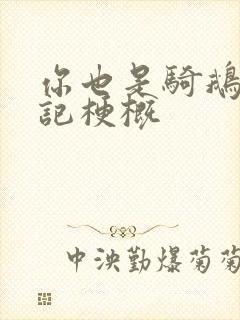 你也是騎鵝
記梗概
中泱勤爆菊菊